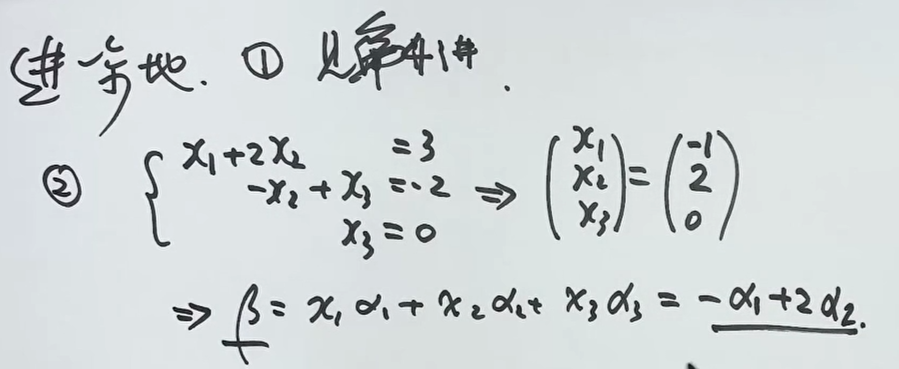 进一步地. ① 见第4讲.
② { x₁+2x₂ =3
-x₂+x₃=-2 ⇒ (x₁ x₂ x₃) = (-1 2 0)
x₃=0
⇒ β = x₁α₁+x₂α₂+x₃α₃ = -α₁+2α₂.